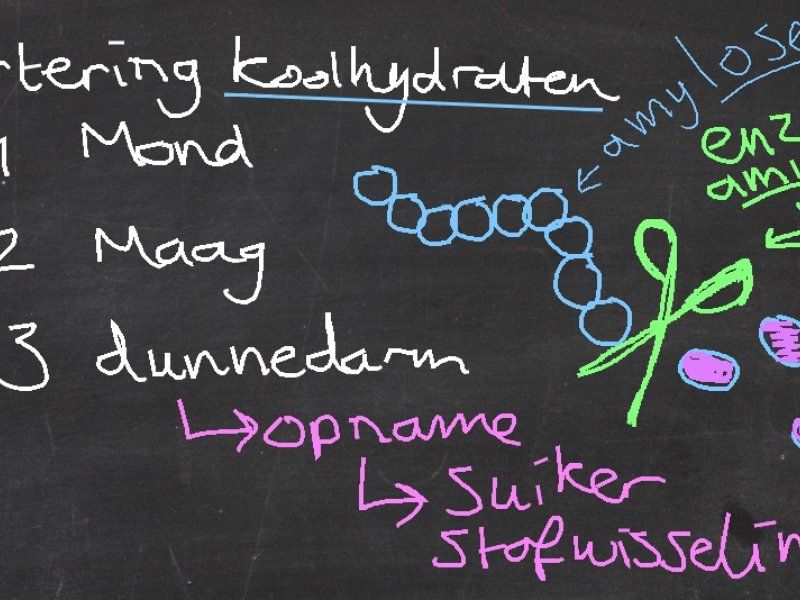 rtering koolhydraten
amylose
1 Mond
enz
amy
2 Maag
3 dunnedarm
opname
suiker
stofwisselin